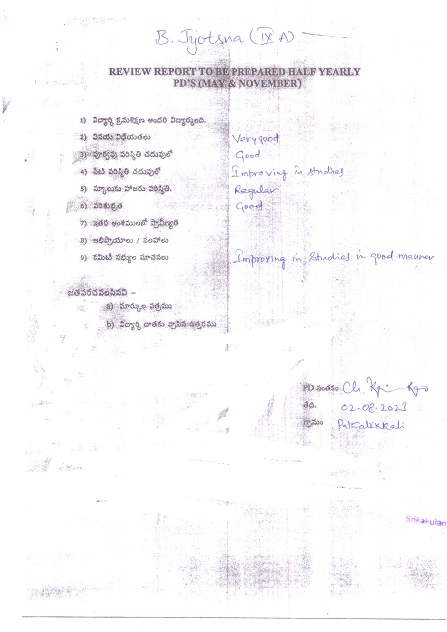 B. Jyotsna (IX A)
REVIEW REPORT TO BE PREPARED HALF YEARLY
PD'S (MAY & NOVEMBER)
1) విద్యార్థి క్రమశిక్షణ అందరి విద్యార్థులది.
2) వినయ విధేయతలు Very good
3) పూర్వపు పరిస్థితి చదువులో Good
4) నేటి పరిస్థితి చదువులో Improving in studies
5) స్కూలుకు హాజరు పరిస్థితి. Regular
6) పరిశుభ్రత Good
7) ఇతర అంశములలో ప్రావీణ్యత
8) అభిప్రాయాలు / సలహాలు
9) కమిటీ సభ్యుల సూచనలు Improving in Studies in good manner
జతపరచవలసినవి –
a) మార్కుల పత్రము
b) విద్యార్థి దాతకు వ్రాసిన ఉత్తరము
PD సంతకం Ch.
తేది. 02-08-2023
గ్రామం
Srikakulam